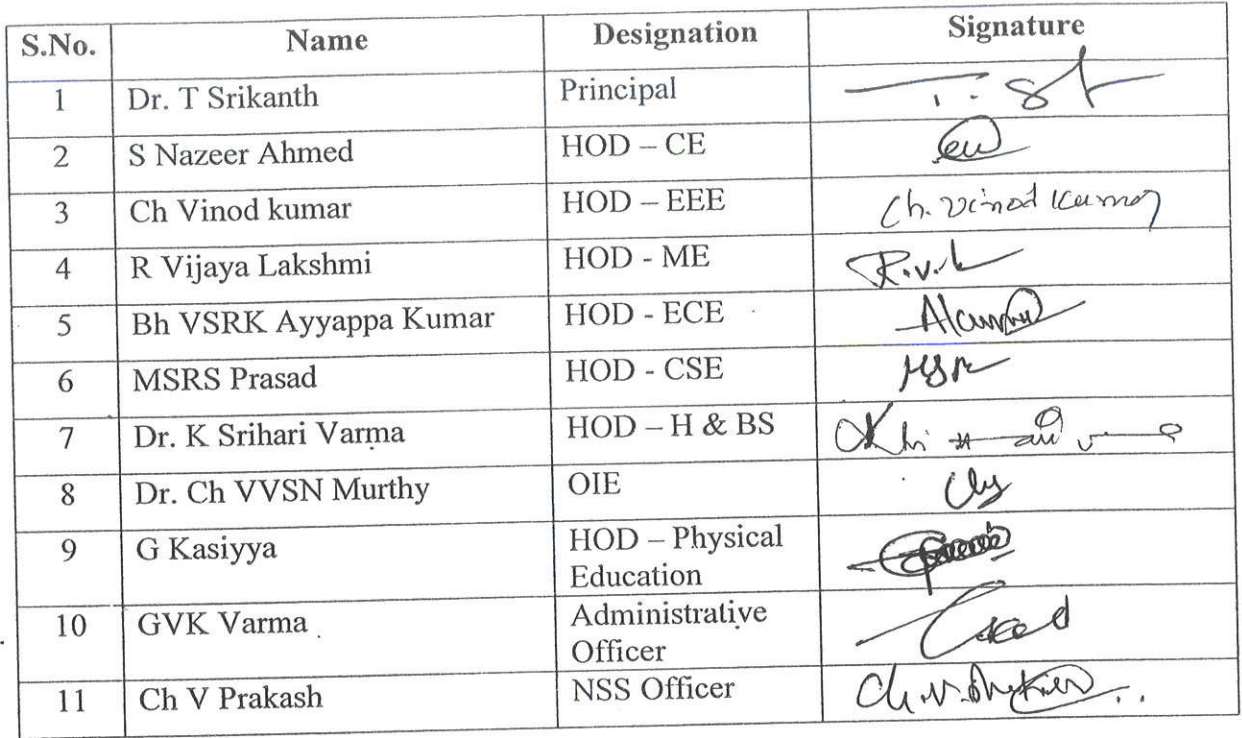 S.No. Name Designation Signature
1 Dr. T Srikanth Principal
2 S Nazeer Ahmed HOD – CE
3 Ch Vinod kumar HOD – EEE Ch. Vinod Kumar
4 R Vijaya Lakshmi HOD - ME
5 Bh VSRK Ayyappa Kumar HOD - ECE
6 MSRS Prasad HOD - CSE
7 Dr. K Srihari Varma HOD – H & BS
8 Dr. Ch VVSN Murthy OIE
9 G Kasiyya HOD – Physical
Education
10 GVK Varma Administrative
Officer
11 Ch V Prakash NSS Officer